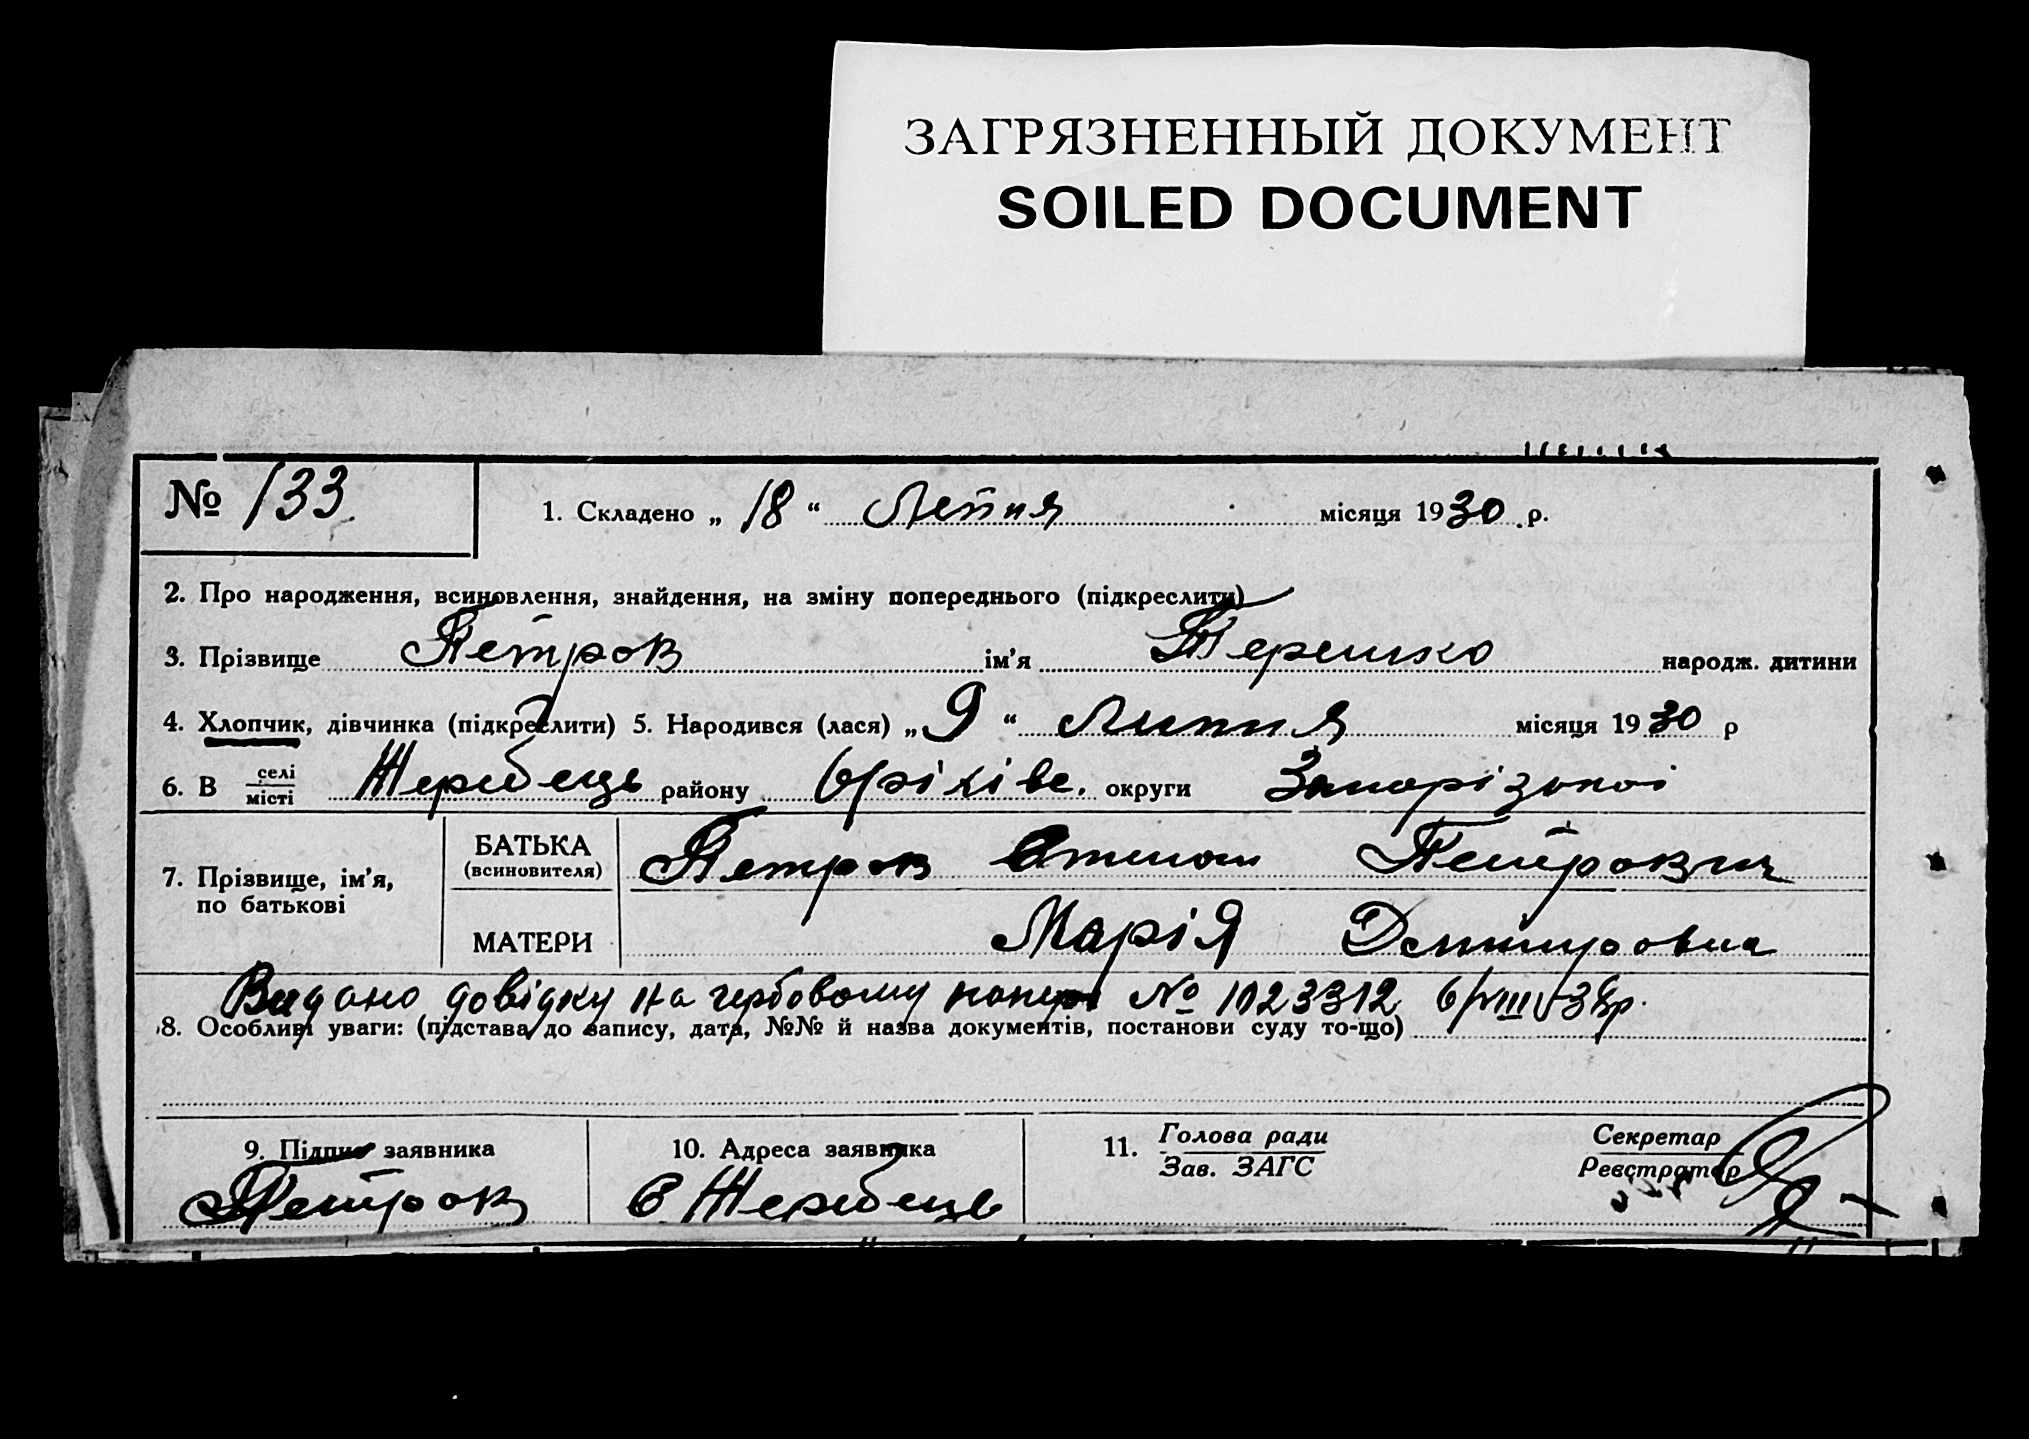 ЗАГРЯЗНЕННЫЙ ДОКУМЕНТ
SOILED DOCUMENT
№ 133
1. Складено „ 18 “ Лепня місяця 1930 р.
2. Про народження, всиновлення, знайдення, на зміну попереднього (підкреслити)
3. Прізвище Петров ім’я Терешко народж. дитини
4. Хлопчик, дівчинка (підкреслити) 5. Народився (лася) „ 9 “ Липня місяця 1930 р
6. В селі місті Жеребець району Оріхівс. округи Запорізької
7. Прізвище, ім’я, по батькові
БАТЬКА (всиновителя) Петров Степан Петрович
МАТЕРИ Марія Дмитровна
Видано довідку на гербовому папері № 1023312 6/VIII 38р.
8. Особливі уваги: (підстава до запису, дата, №№ й назва документів, постанови суду то-що)
9. Підпис заявника
Петров
10. Адреса заявника
с Жеребець
11. Голова ради
Зав. ЗАГС
Секретар
Реєстратор